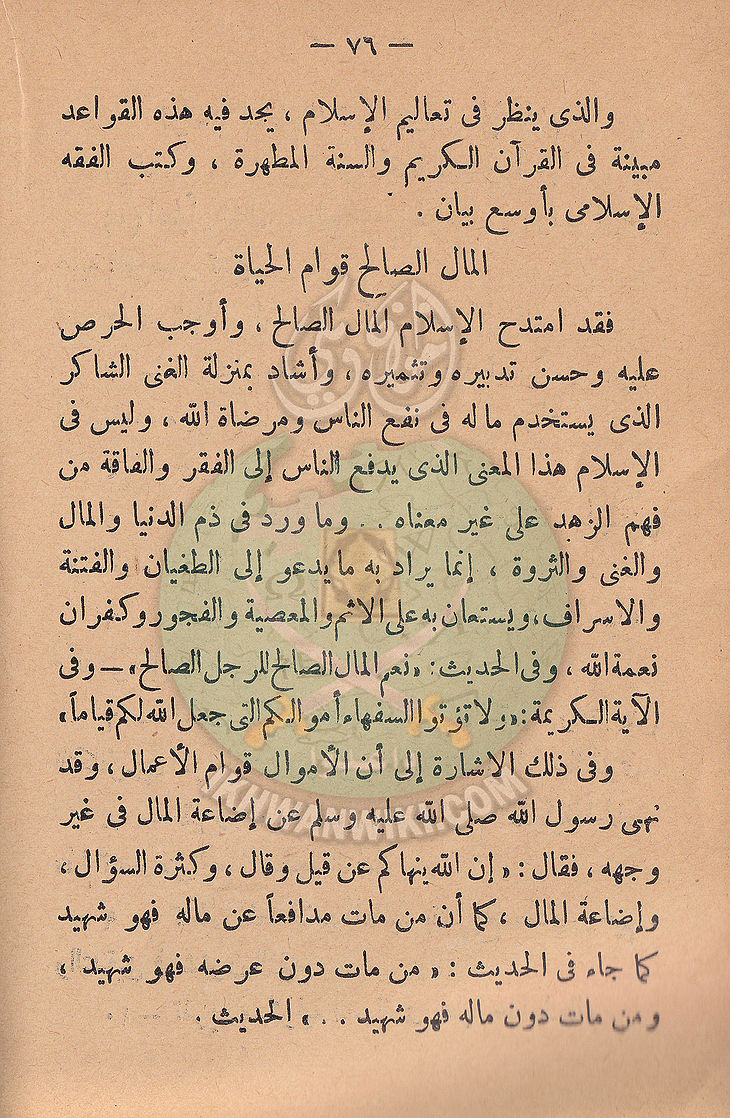 — ٧٦ —
والذى ينظر فى تعاليم الإسلام ، يجد فيه هذه القواعد
مبينة فى القرآن الكريم والسنة المطهرة ، وكتب الفقه
الإسلامى بأوسع بيان .
المال الصالح قوام الحياة
فقد امتدح الإسلام المال الصالح ، وأوجب الحرص
عليه وحسن تدبيره وتثميره ، وأشاد بمنزلة الغنى الشاكر
الذى يستخدم ماله فى نفع الناس ومرضاة الله ، وليس فى
الإسلام هذا المعنى الذى يدفع الناس إلى الفقر والفاقة من
فهم الزهد على غير معناه . . وما ورد فى ذم الدنيا والمال
والغنى والثروة ، إنما يراد به ما يدعو إلى الطغيان والفتنة
والاسراف، ويستعان به على الاثم والمعصية والفجور وكفران
نعمة الله ، وفى الحديث : « نعم المال الصالح للرجل الصالح » — وفى
الآية الكريمة : « ولا تؤتوا السفهاء أموالكم التى جعل الله لكم قياماً »
وفى ذلك الاشارة إلى أن الأموال قوام الأعمال ، وقد
نهى رسول الله صلى الله عليه وسلم عن إضاعة المال فى غير
وجهه ، فقال : « إن الله ينهاكم عن قيل وقال ، وكثرة السؤال ،
وإضاعة المال ، كما أن من مات مدافعاً عن ماله فهو شهيد
كما جاء فى الحديث : « من مات دون عرضه فهو شهيد ،
ومن مات دون ماله فهو شهيد . . » الحديث .
IKHWANWIKI.COM